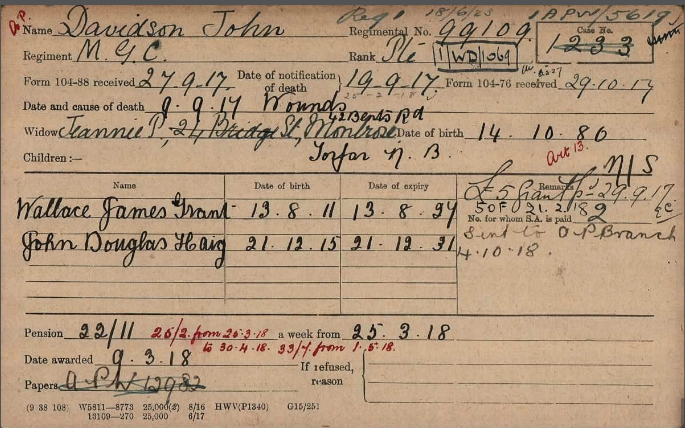 A.P. Reg 1 18/6/23 1 APW/5619
Name Davidson John Regimental No. 99109 Case No.
1233
Regiment M.G.C. Rank Pte 1/WD/1069
Form 104-88 received 27.9.17. Date of notification of death } 19.9.17. Form 104-76 received 29.10.17
Date and cause of death 9.9.17 Wounds
42 Bents Rd
Widow Jeannie P, 24 Bridge St, Montrose Date of birth 14.10.86
Children :— Forfar N.B. Art 13. N/S
Name Date of birth Date of expiry Remarks
£5 Grant Pd 29.9.17.
Wallace James Grant 13.8.11 13.8.27 SOF 21.2.18
No. for whom S.A. is paid 2
John Douglas Haig 21.12.15 21.12.31 Sent to A.P. Branch
4.10.18.
Pension 22/11 26/2. from 25.3.18 a week from 25.3.18
to 30.4.18. 33/4. from 1.5.18.
Date awarded 9.3.18
If refused, reason {
Papers A.P.W. 12982
(9 38 108) W5811—8773 25,000(2) 8/16 HWV(P1340) G15/251
13109—270 25,000 6/17